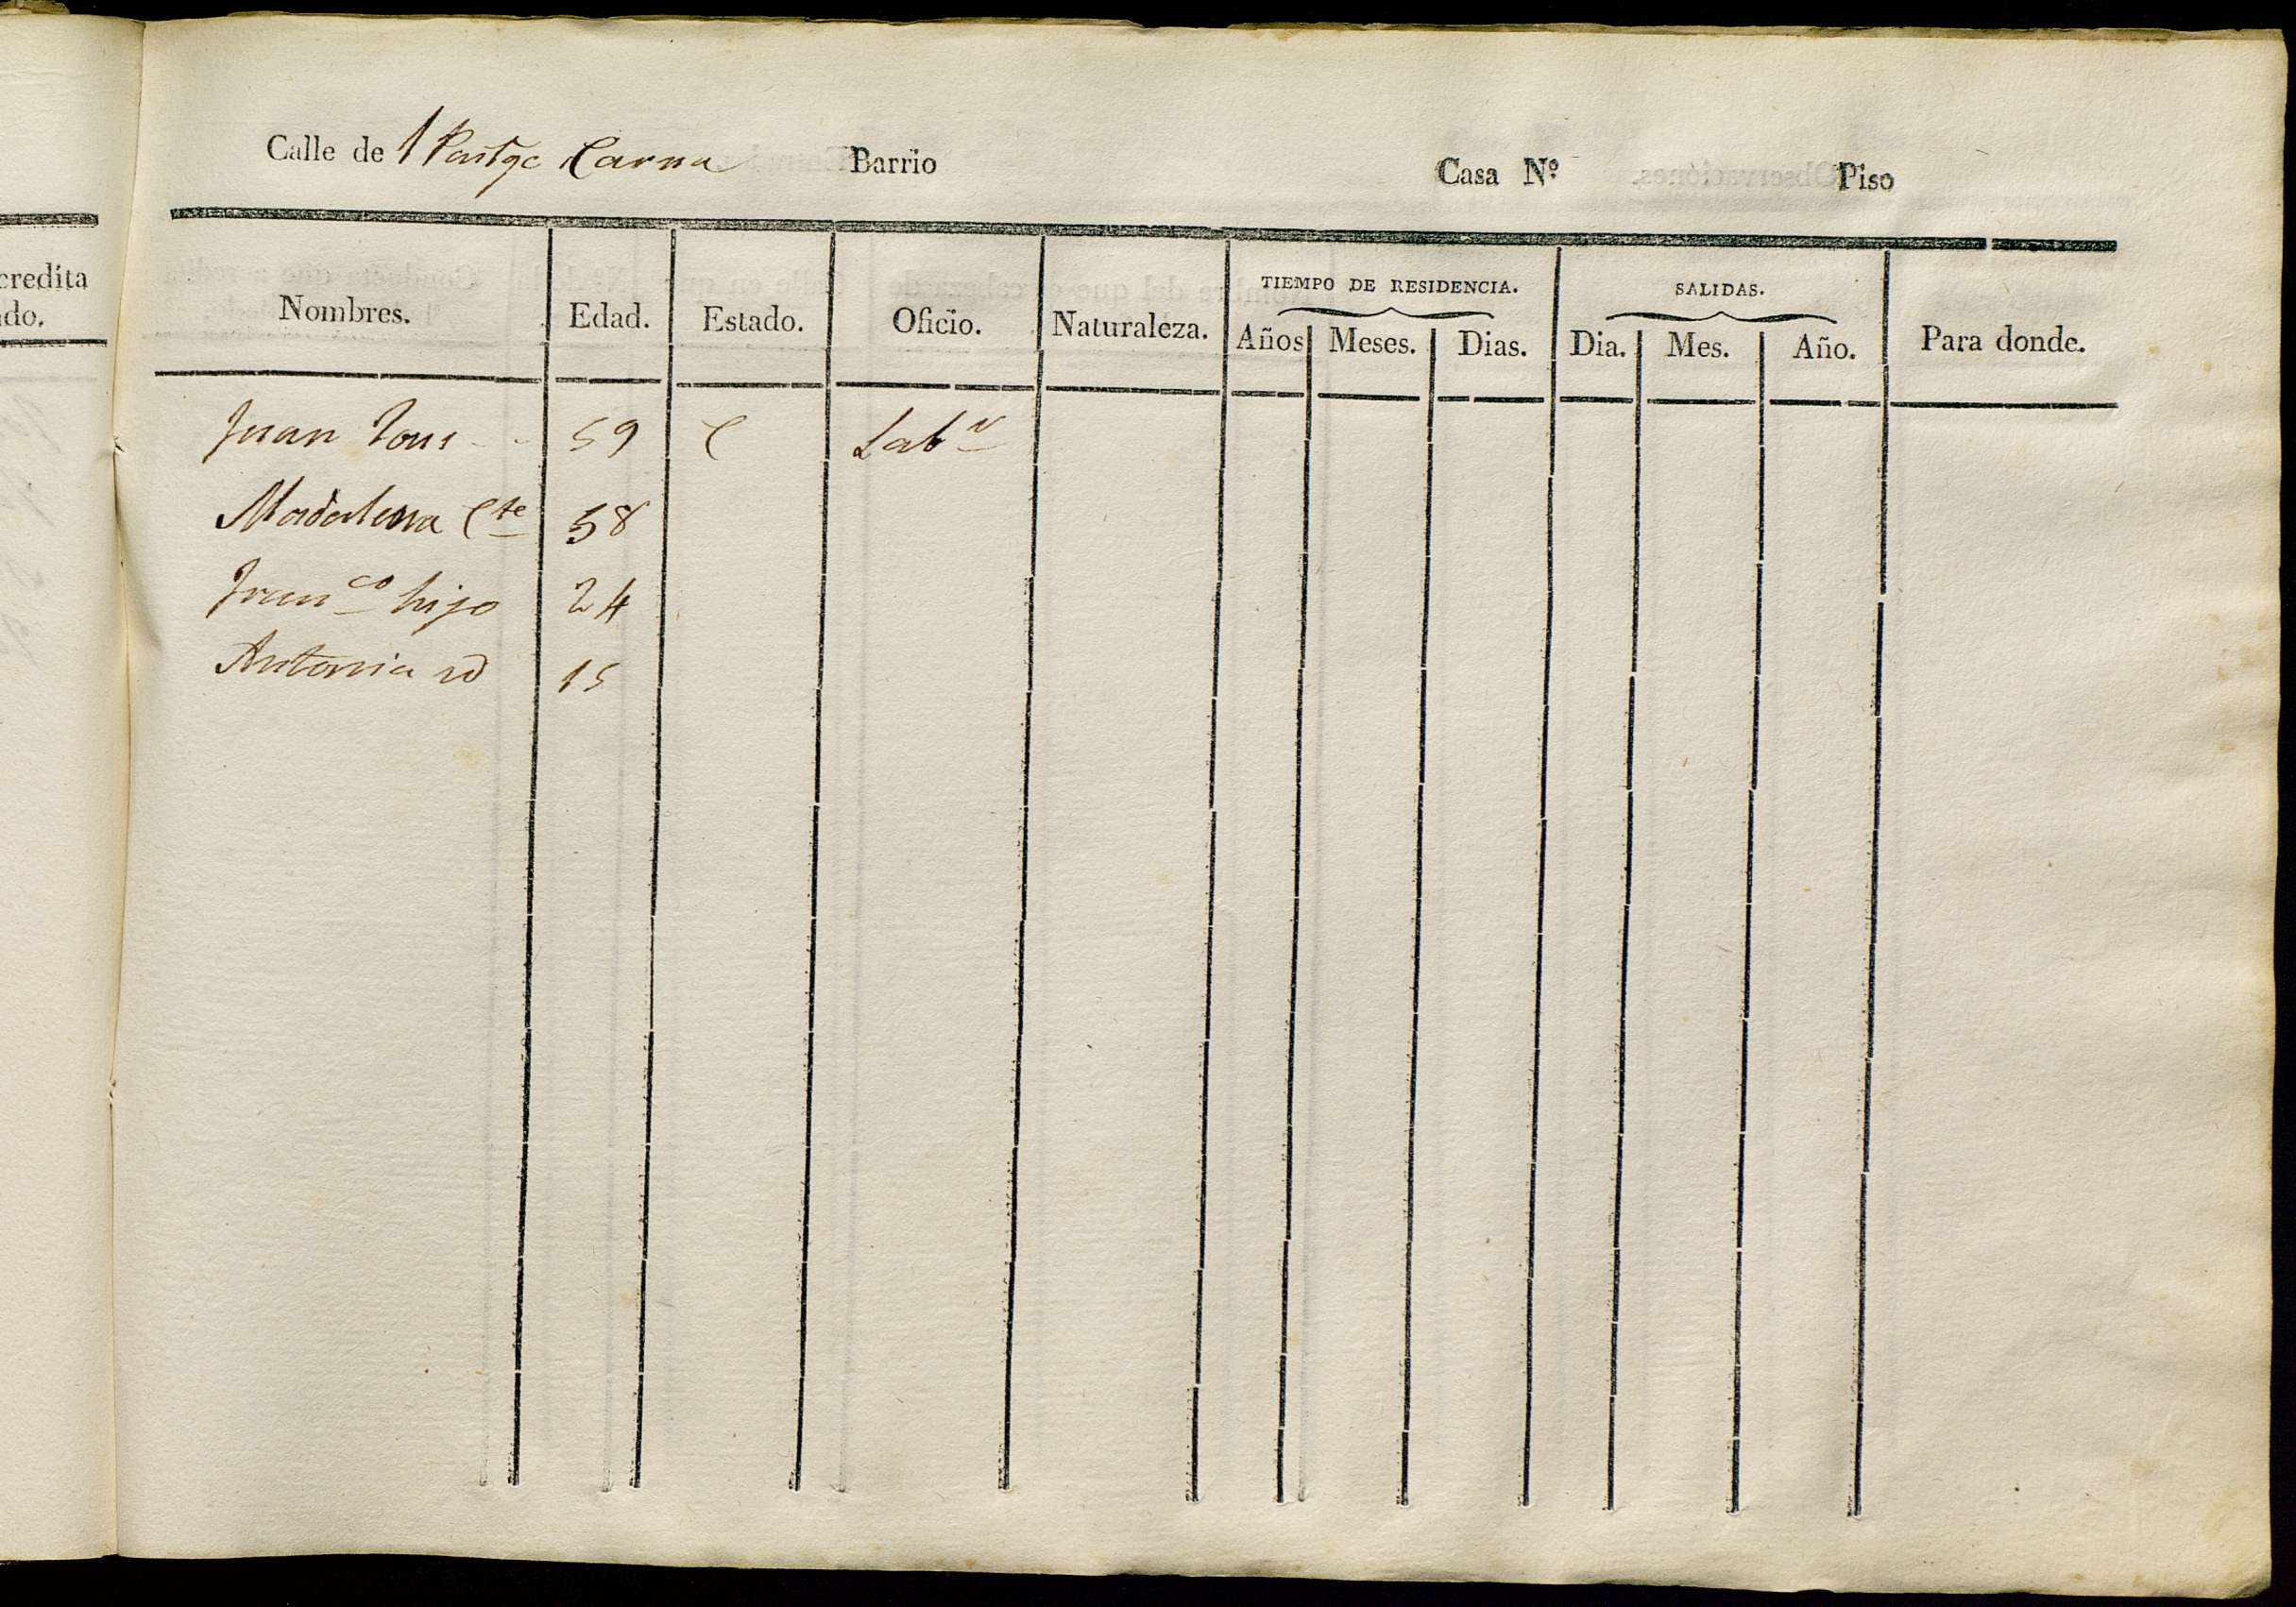 credita
do.
Calle de 1 Carna Barrio Casa Nº Piso
Nombres. Edad. Estado. Oficio. Naturaleza. TIEMPO DE RESIDENCIA. Años Meses. Dias. SALIDAS. Dia. Mes. Año. Para donde.
Juan Tous 59 C Labr
Madalena Cte 58
Franco hijo 24
Antonia id 15